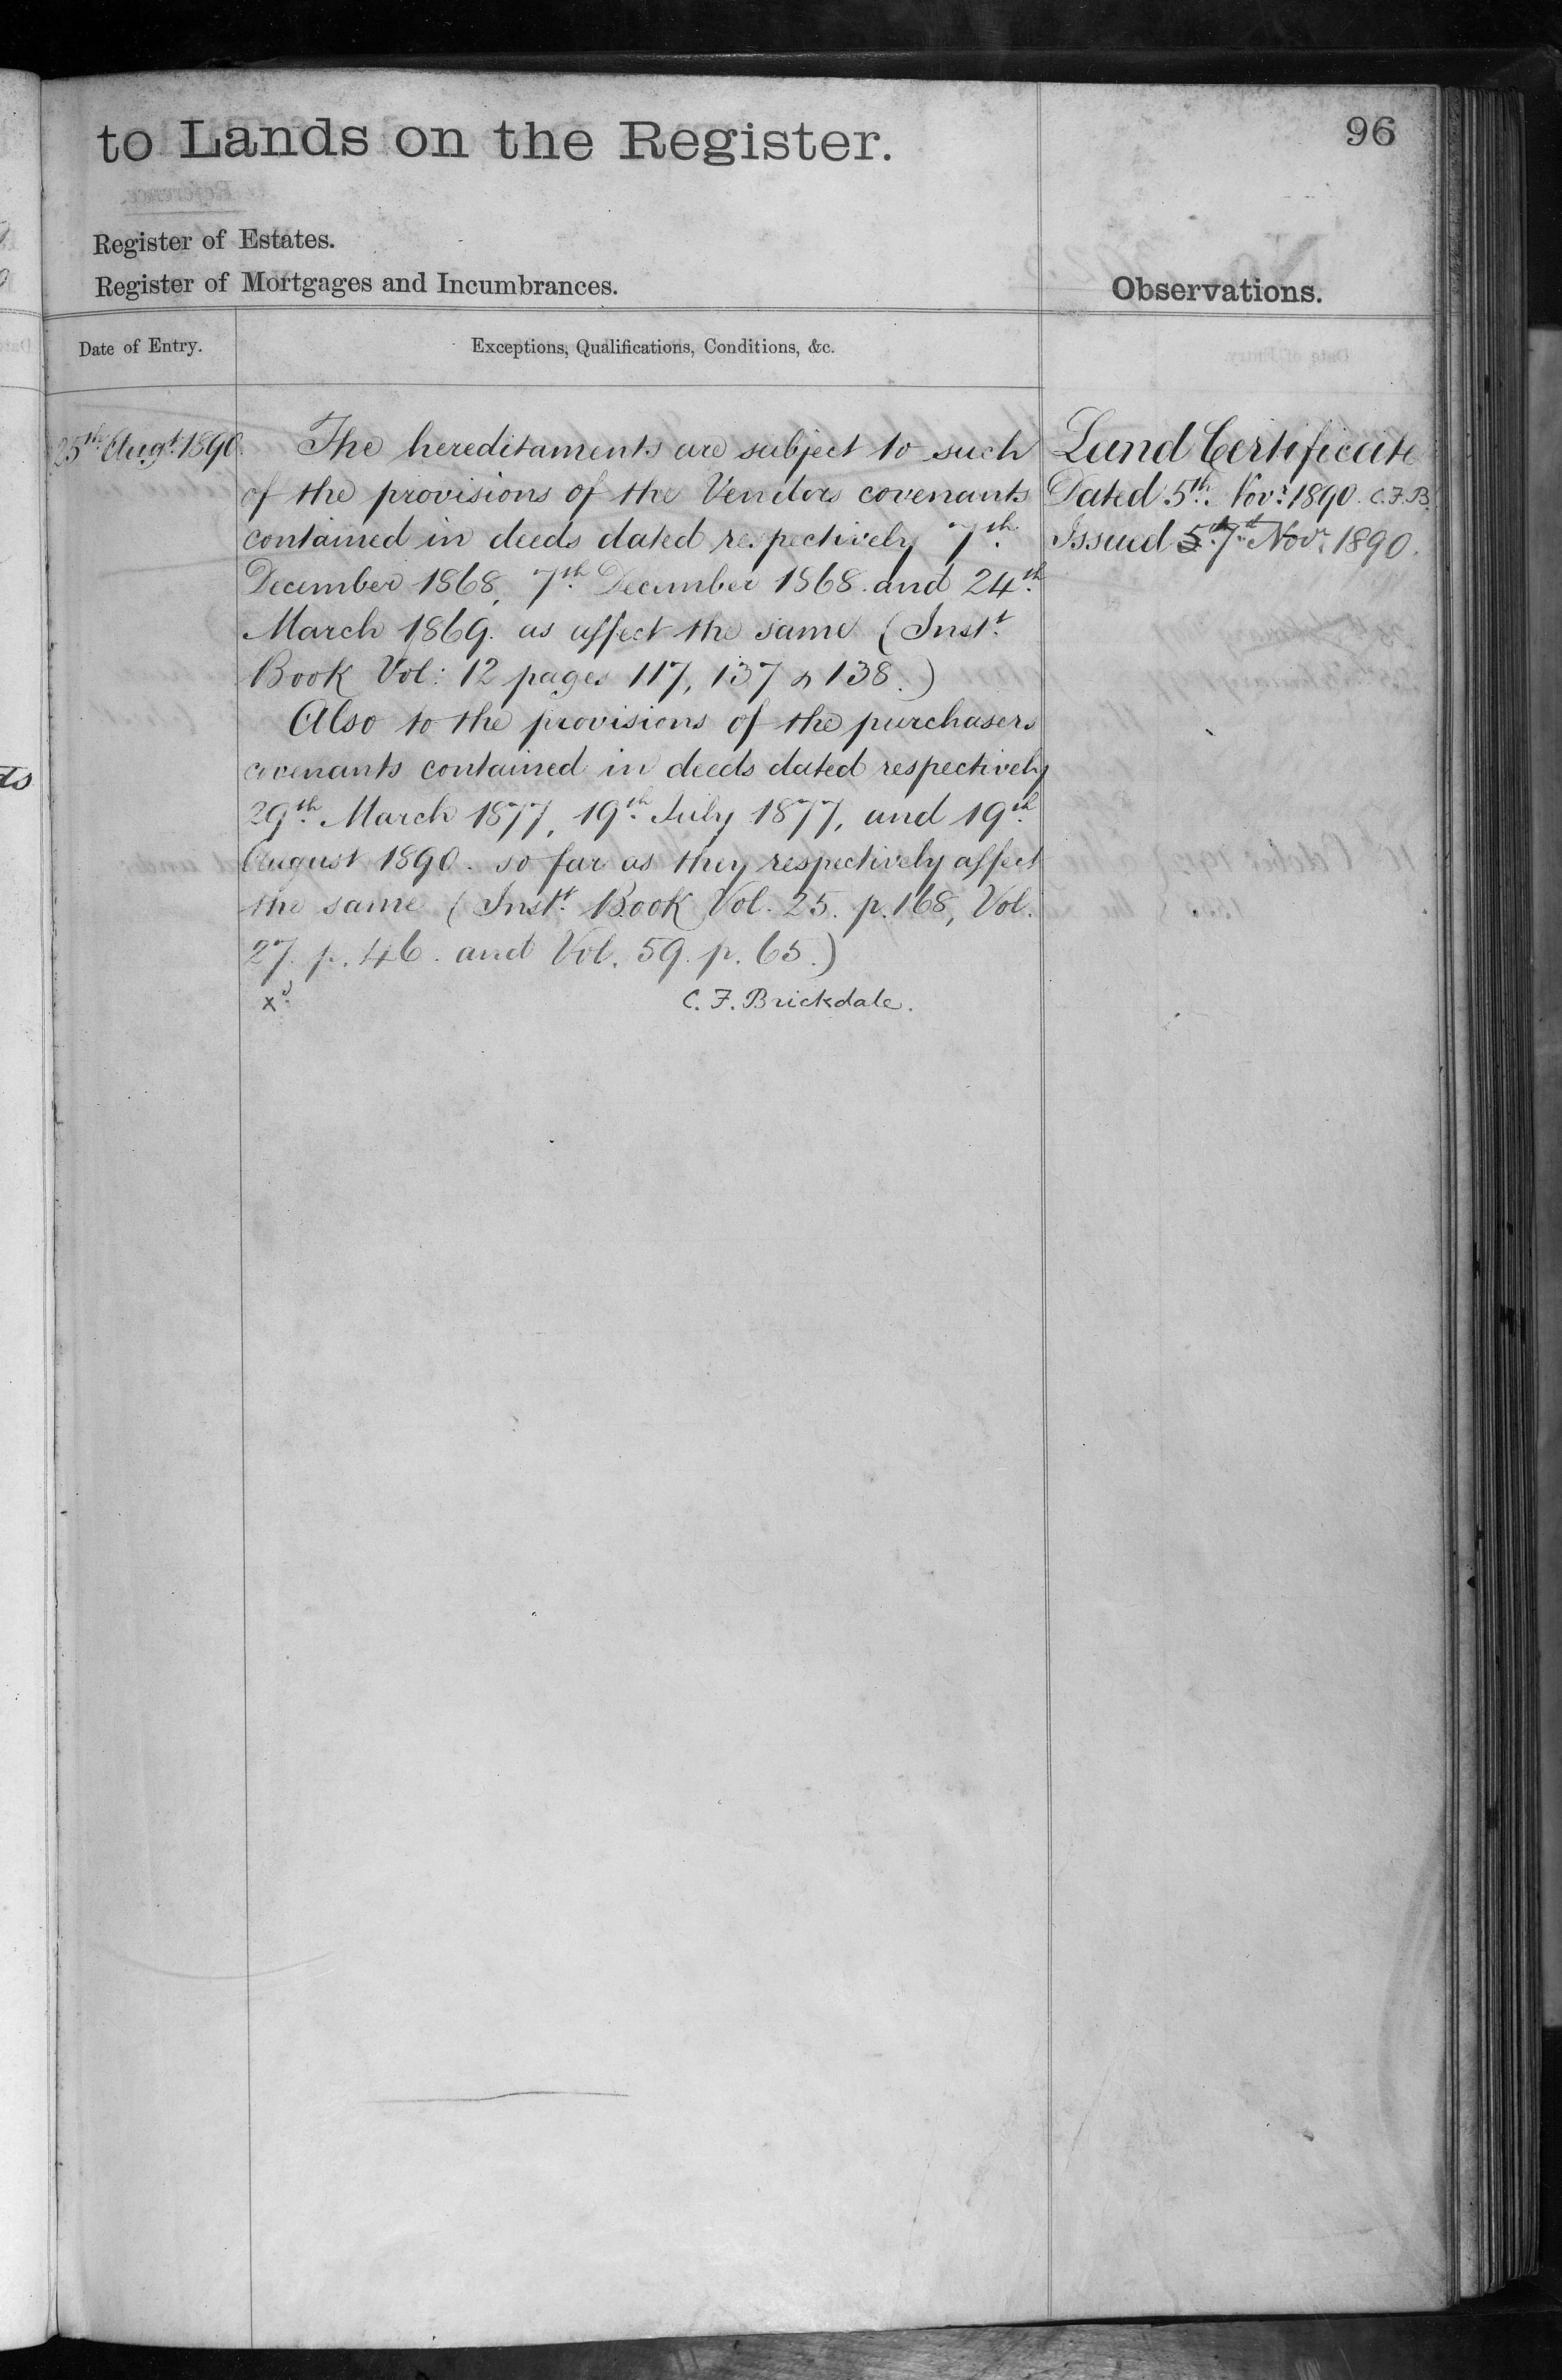 to Lands on the Register.
96
Register of Estates.
Register of Mortgages and Incumbrances.
Observations.
Date of Entry.
Exceptions, Qualifications, Conditions, &c.
25th Augt. 1890.
The hereditaments are subject to such
of the provisions of the Vendors covenants
contained in deeds dated respectively 7th
December 1868, 7th December 1868 and 24th
March 1869. as affect the same (Instt.
Book Vol: 12 pages 117, 137 & 138.)
Also to the provisions of the purchasers
covenants contained in deeds dated respectively
29th March 1877, 19th July 1877, and 19th
August 1890. so far as they respectively affect
the same (Instt. Book Vol. 25. p. 168, Vol.
27. p. 46. and Vol. 59. p. 65.)
xd
C. F. Brickdale.
Land Certificate
Dated 5th Novr. 1890. C.F.B.
Issued 5th 7th Novr. 1890.